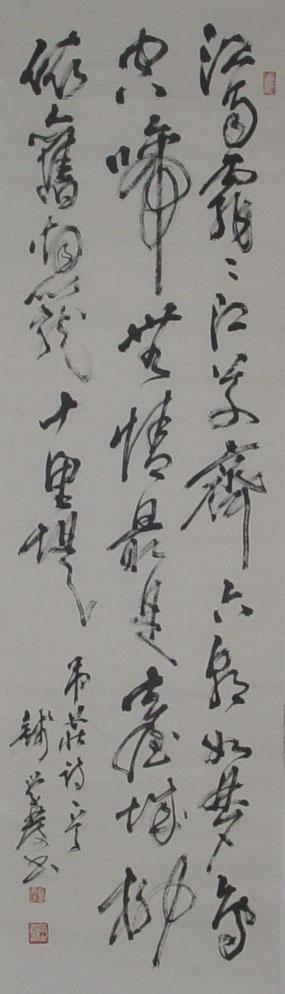 江雨霏〻江草齊六朝如夢鳥
空啼無情最是臺城柳
依舊烟籠十里堤
韋莊詩